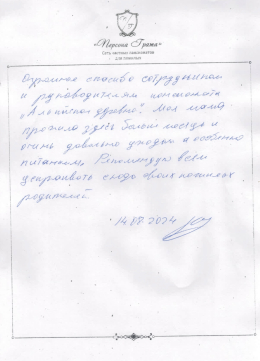 «Персона Грата»
Сеть частных пансионатов
для пожилых
Огромное спасибо сотрудникам
и руководителям пансионата
"Альпийская деревня". Моя мама
прожила здесь более месяца и
очень довольна уходом и особенно
питанием. Рекомендую всем
устраивать сюда своих пожилых
родителей.
14.07.2024